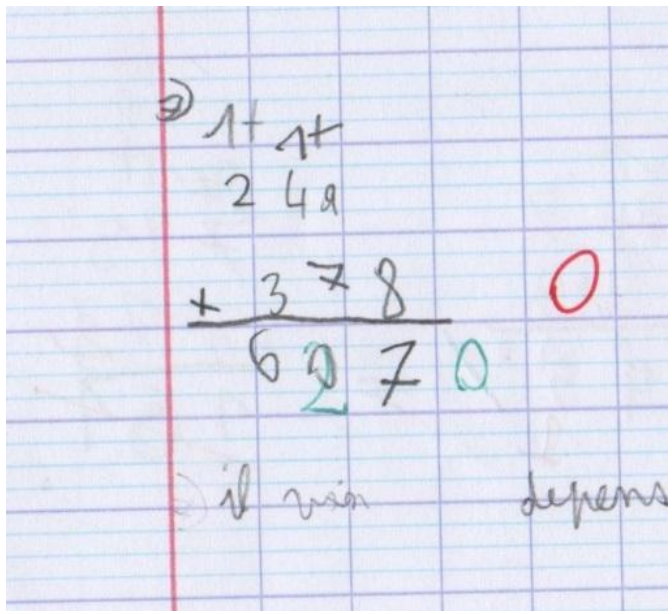 2) 1+ 1+
2 4 9
+ 3 7 8 0
6 2 7 0
il depens